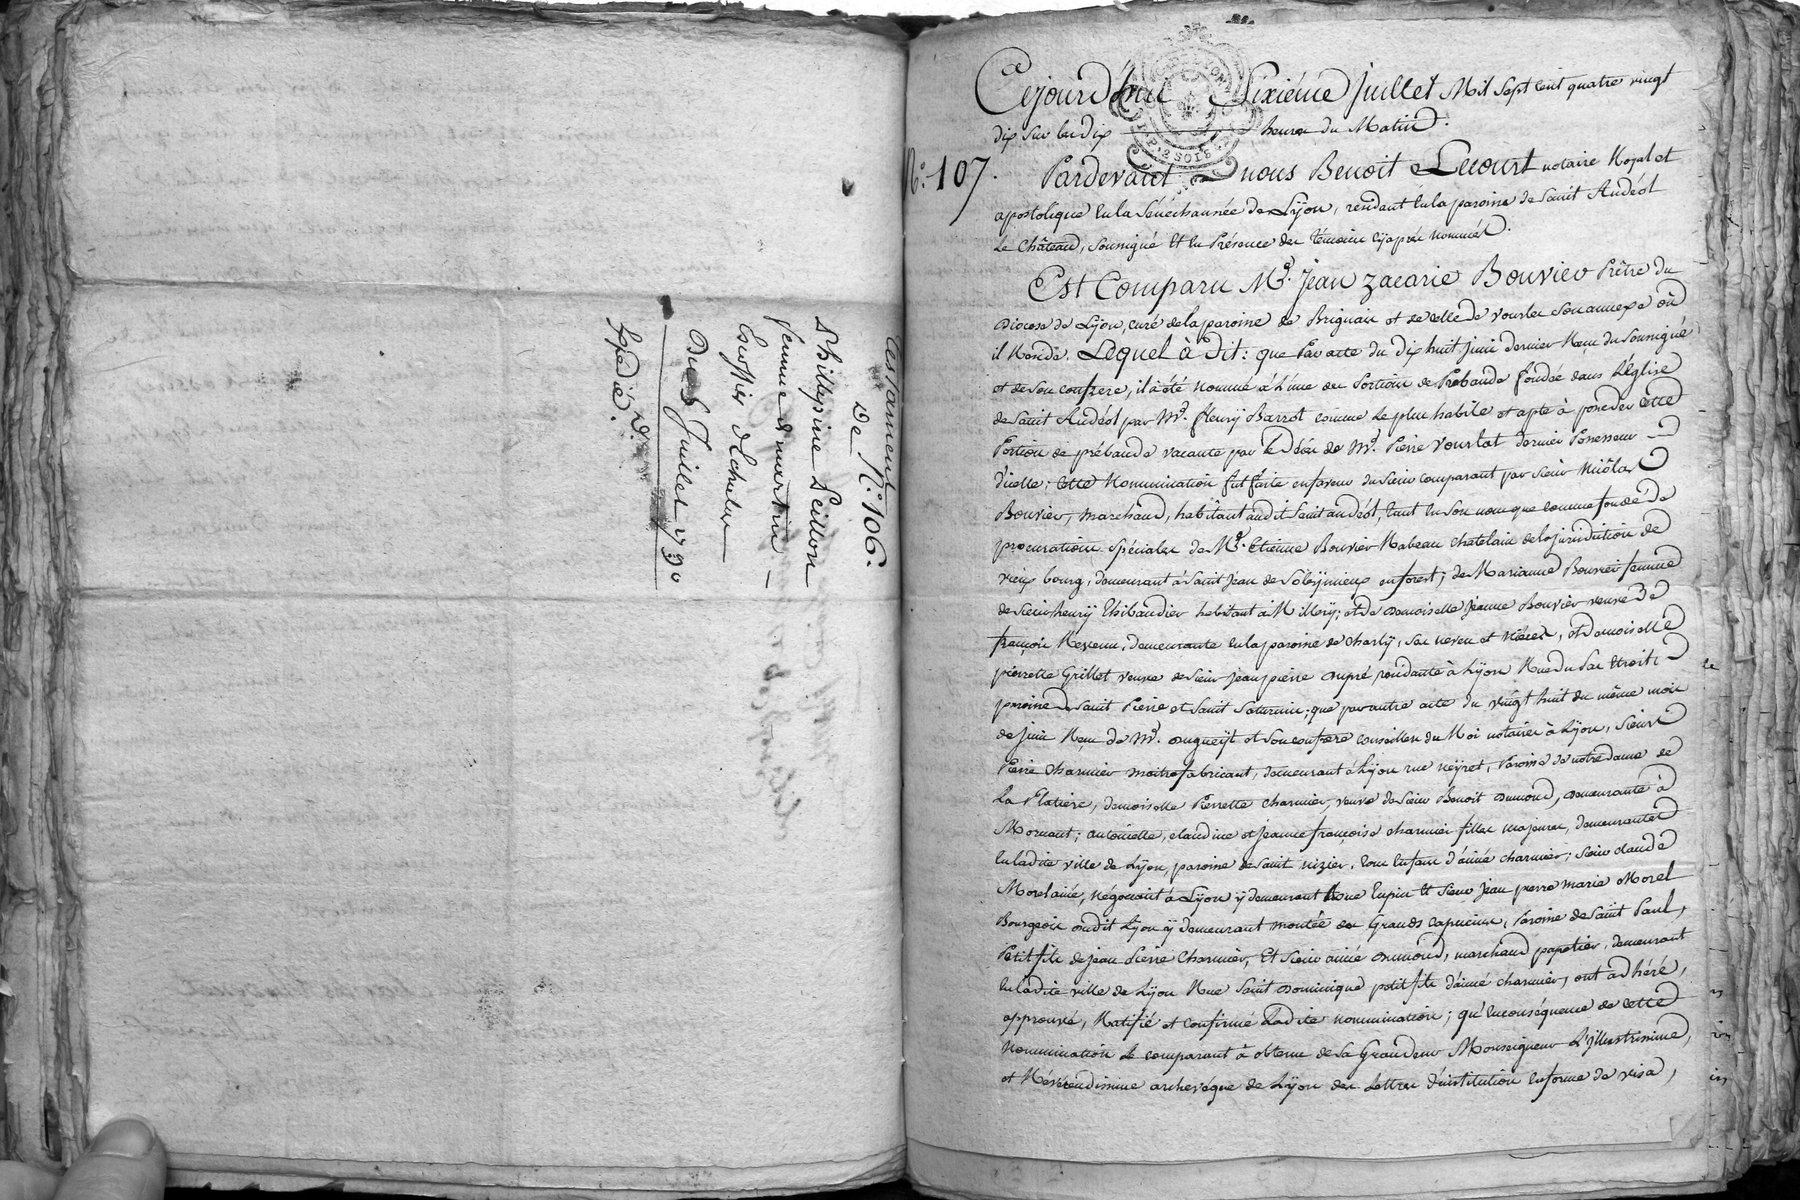 Testament
De N.° 106.
Phillipine Peillon
femme de martin
Du 5 Juillet 1790
Expedié.
N.° 107.
Cejourd'hui Sixiéme Juillet Mil Sept cent quatre vingt
dix sur les dix heures du Matin.
Pardevant nous Benoit Lecourt notaire Royal et
apostolique en la Sénéchaussée de Lyon, residant en la paroisse de Saint Andéol
Le Château, soussigné Et en Présence des témoins cy après nommés.
Est Comparu M.e Jean Zacarie Bouvier Prêtre du
Diocese de Lyon, curé de la paroisse de Brignais et de celle de vourles son annexe où
il Reside. Lequel à Dit: que Par acte du dix huit juin dernier Reçu du soussigné
et de son confrere, il à été nommé à L'une des Portions de Prébande fondée dans L'église
de Saint Andéol par M.e fleury Barrot comme Le plus habile et apte à posseder cette
Portion de prébande vacante par le Décès de M.e Pierre vourlat dernier Possesseur
d'icelle; cette Nommination fut faite en faveur du Sieur comparant par Sieur Nicolas
Bouvier, marchand, habitant audit Saint andéol, tant en son nom que comme fondé de
procurations spéciales de M.e Etienne Bouvier Rabeau chatelain de la jurisdiction de
vieux bourg, demeurant à Saint Jean de Soleymieux en forest; de Marianne Bouvier femme
de Sieur henry thibaudier habitant à Millery; et de Demoiselle Jeanne Bouvier veuve de
françois Revenu, demeurante en la paroisse de Charly, ses neveu et niéces, et demoiselle
pierrette Grillet veuve de Sieur jean pierre Dupré, residante à Lyon Rue du Sac Etroit,
paroisse de Saint Pierre et Saint Saturnin; que par autre acte du vingt huit du même mois
de juin Reçu de M.e Dugueyt et son confrere conseillers du Roi notaires à Lyon, Sieurs
Pierre Charmier maitre fabricant, demeurant à Lyon rue neyret, Paroisse de notre dame de
La Platiere, demoiselle Pierrette charmier, veuve de Sieur Benoit Dumond, Demeurante à
Mornant; antoinette, claudine et jeanne françoise charmier filles majeures, demeurantes
en ladite ville de Lyon, paroisse de Saint nizier, tous Enfans d'aimé charmier; Sieur claude
Morel ainé, négociant à Lyon y demeurant Rue Tupin Et Sieur Jean pierre marie Morel
Bourgeois audit Lyon y demeurant montée des Grands capucins, Paroisse de Saint Paul,
Petit fils de jean Pierre Charmier, Et Sieur aimé Dumond, marchand papetier, demeurant
en ladite ville de Lyon Rue Saint Dominique petit fils d'aimé charmier, ont adhéré,
approuvé, Ratifié et confirmé Ladite nommination; qu'en conséquence de cette
Nommination Le comparant à obtenu de Sa Grandeur Monseigneur L'illustrissime,
et Révérendissime archevêque de Lyon des Lettres d'institution en forme de visa,